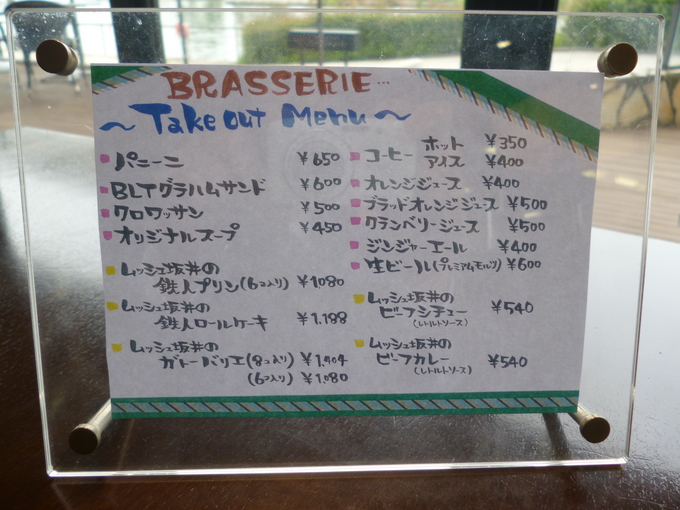 BRASSERIE...
~Take out Menu~
パニーニ ¥650
BLTグラハムサンド ¥600
クロワッサン ¥500
オリジナルスープ ¥450
ムッシュ坂井の
鉄人プリン(6コ入り) ¥1,080
ムッシュ坂井の
鉄人ロールケーキ ¥1,188
ムッシュ坂井の
ガトーバリエ(8コ入り) ¥1,404
(6コ入り) ¥1,080
コーヒー ホット ¥350
アイス ¥400
オレンジジュース ¥400
ブラッドオレンジジュース ¥500
クランベリージュース ¥500
ジンジャーエール ¥400
生ビール(プレミアムモルツ) ¥600
ムッシュ坂井の
ビーフシチュー ¥540
(レトルトソース)
ムッシュ坂井の
ビーフカレー ¥540
(レトルトソース)